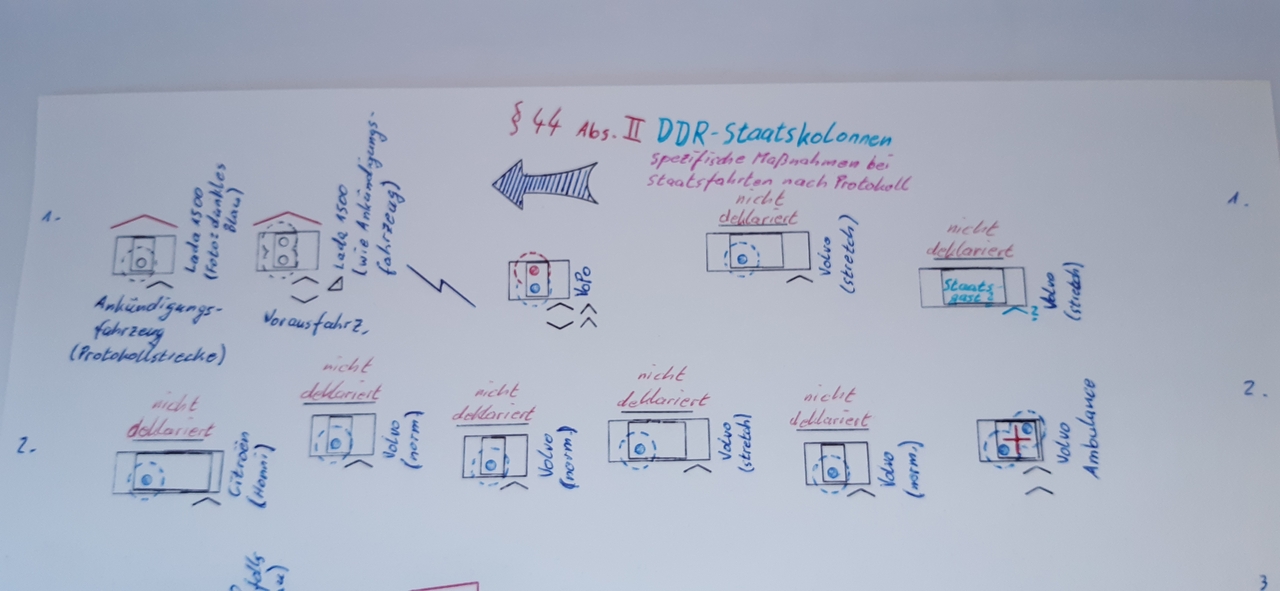 § 44 Abs. II DDR-Staatskolonnen
spezifische Maßnahmen bei
Staatsfahrten nach Protokoll
1.
Lada 1500
(Foto: dunkles
Blau)
Ankündigungs-
fahrzeug
(Protokollstrecke)
Lada 1500
(wie Ankündigungs-
fahrzeug)
Vorausfahrz.
VoPo
nicht
deklariert
Volvo
(stretch)
nicht
deklariert
Staats-
gast
Volvo
(stretch)
1.
2.
nicht
deklariert
Citroën
(Honni)
nicht
deklariert
Volvo
(norm)
nicht
deklariert
Volvo
(norm.)
nicht
deklariert
Volvo
(stretch)
nicht
deklariert
Volvo
(norm)
Volvo
Ambulance
2.
3